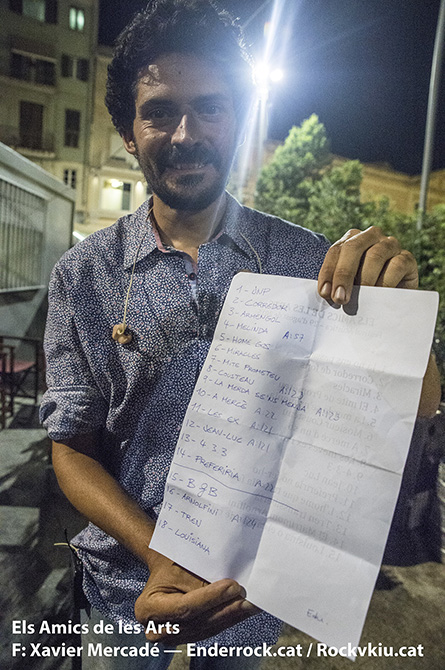 1 - JNP
2 - CORREDOR
3 - ARMENGOL
4 - MELINDA A:137
5 - HOME GOS
6 - MIRACLES
7 - MITE PROMETEU
8 - COUSTEAU A:123
9 - LA MERDA SE'NS MENJA A:123
10 - A MERCÈ A:22
11 - LES EX A:121
12 - JEAN-LUC A:121
13 - 4 3 3
14 - PREFERIRIA
15 - B & B
16 - ARNOLFINI A:124
17 - TREN
18 - LOUISIANA
Els Amics de les Arts
F: Xavier Mercadé — Enderrock.cat / Rockvkiu.cat